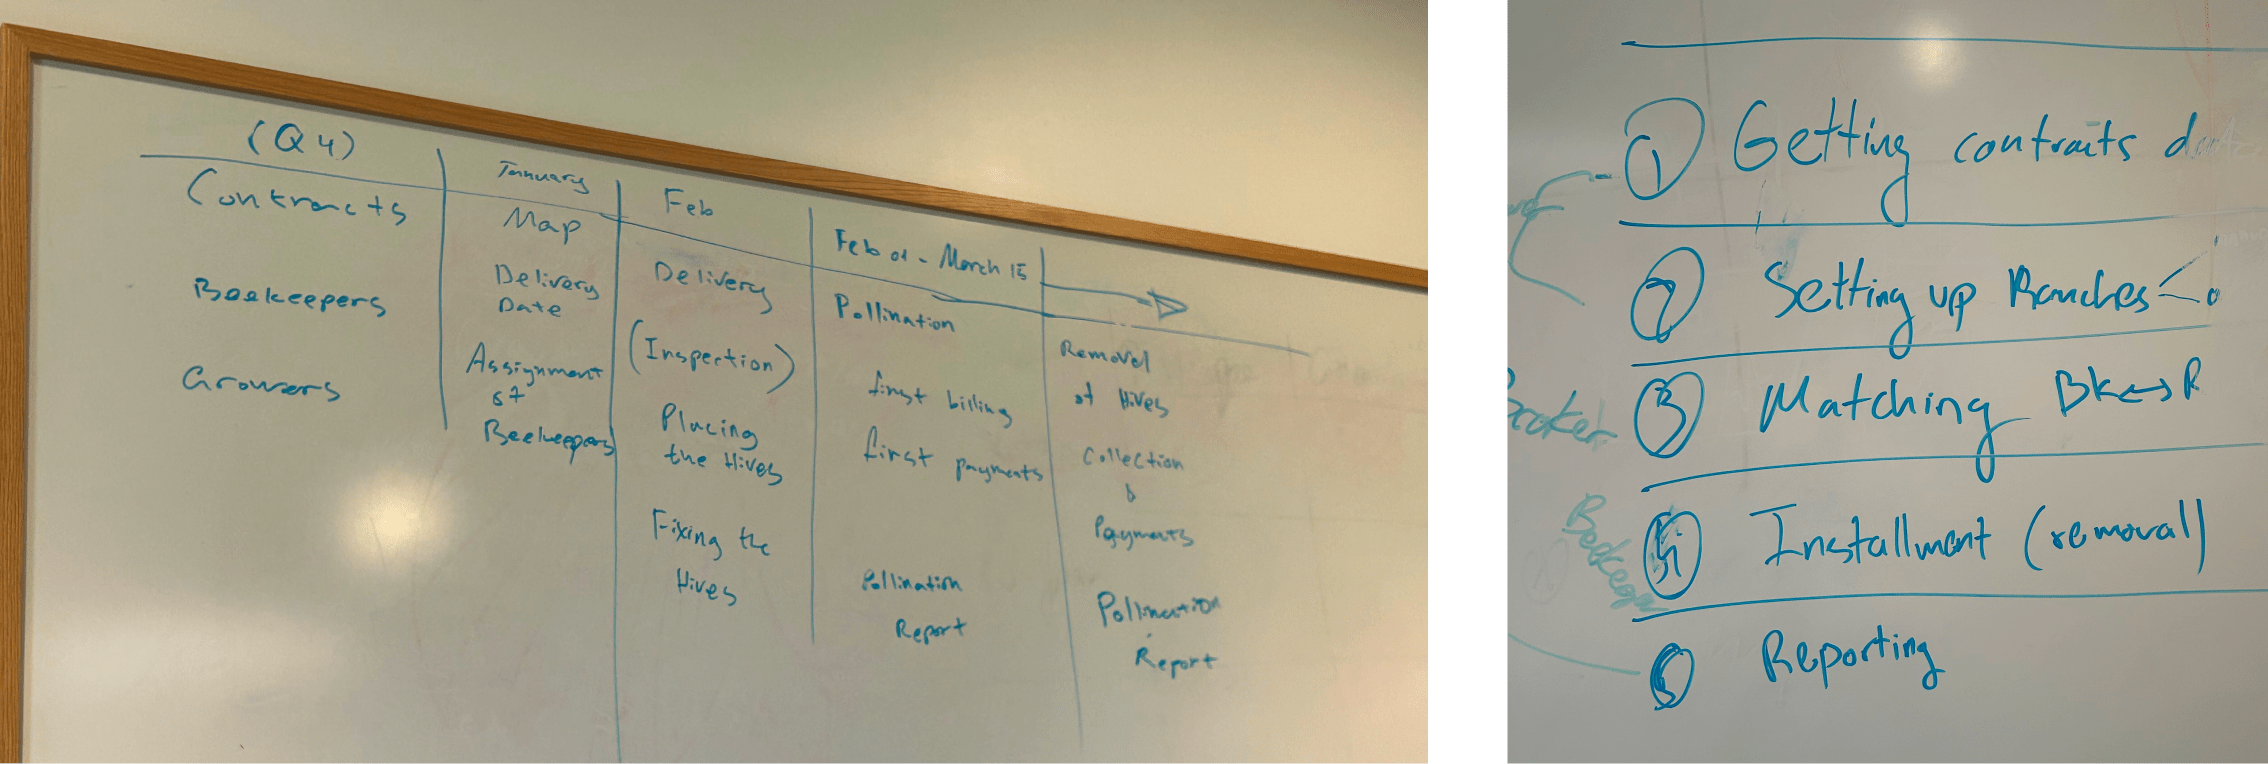 (Q4)
Contracts
Beekeepers
Growers
January
Map
Delivery
Date
Assignment
of
Beekeepers
Feb
Delivery
(Inspection)
Placing
the Hives
Fixing the
Hives
Feb 01 - March 15
Pollination
first billing
first payments
Pollination
Report
Removal
of Hives
Collection
&
Payments
Pollination
Report
1 Getting contraits
2 Setting up Ranches
3 Matching BK↔R
Installment (removal)
Reporting
Broker
Beekeep